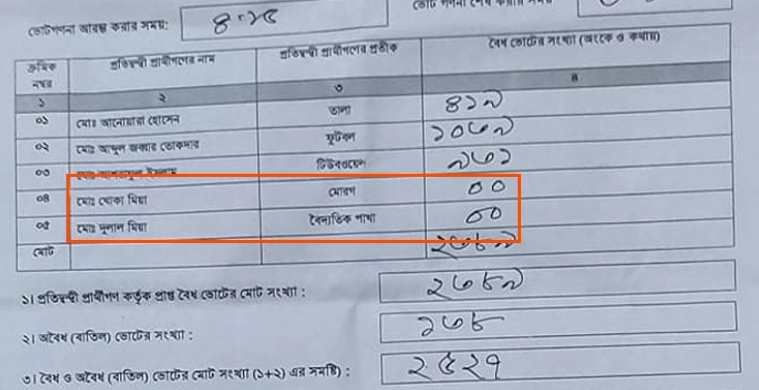 ভোটগণনা আরম্ভ করার সময়: ৪·২৫
ভোট গণনা শেষ করার সময়
ক্রমিক নম্বর প্রতিদ্বন্দ্বী প্রার্থীগণের নাম প্রতিদ্বন্দ্বী প্রার্থীগণের প্রতীক বৈধ ভোটের সংখ্যা (অংকে ও কথায়)
১ ২ ৩ ৪
০১ মোঃ আনোয়ারা হোসেন তালা ৪১৯
০২ মোঃ আব্দুল জব্বার তোকদার ফুটবল ১০৬৯
০৩ মোঃ ইসলাম টিউবওয়েল ৯৬১
০৪ মোঃ খোকা মিয়া মোরগ ০০
০৫ মোঃ দুলাল মিয়া বৈদ্যুতিক পাখা ০০
মোট ২৩৮৯
১। প্রতিদ্বন্দ্বী প্রার্থীগণ কর্তৃক প্রাপ্ত বৈধ ভোটের মোট সংখ্যা : ২৩৮৯
২। অবৈধ (বাতিল) ভোটের সংখ্যা : ১৩৮
৩। বৈধ ও অবৈধ (বাতিল) ভোটের মোট সংখ্যা (১+২) এর সমষ্টি) : ২৫২৭